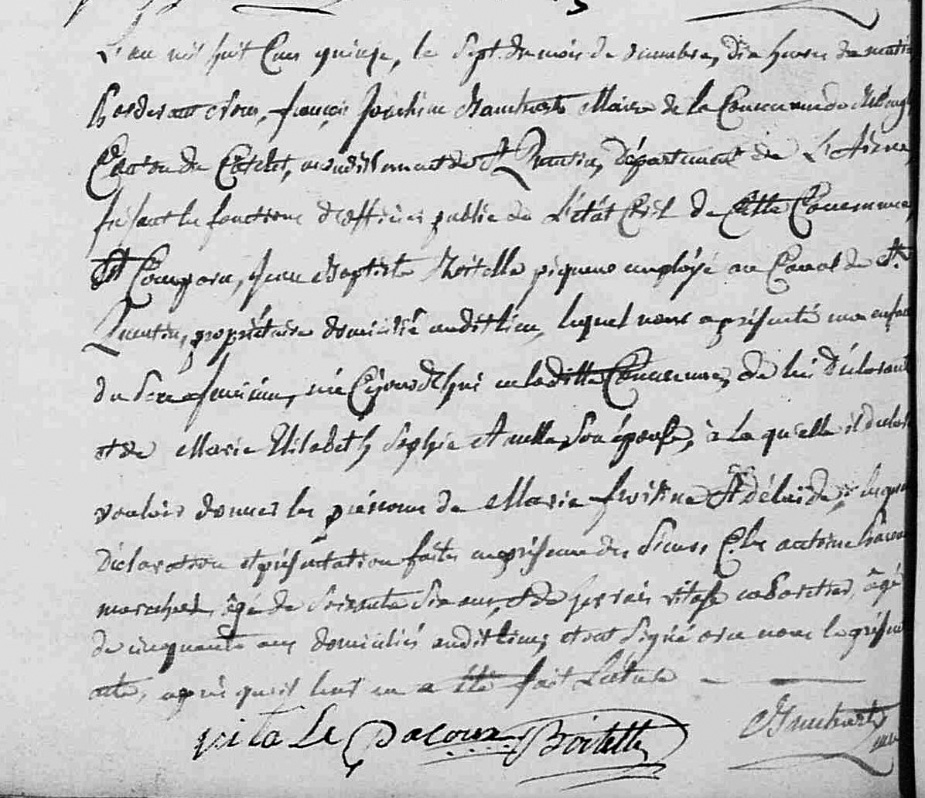 L'an mil huit Cens quinze, le sept du mois de decembre, dix heures du matin
Pardevant Nous, françois Joachim Maire de la Commune de
Canton du Catelet, arrondissement de St Quentin, Département de L'Aisne,
faisant les fonctions d'officier public de L'état Civil de Cette Commune
Est Comparu, Jean Baptiste Boitelle piqueur employé au Canal de St
Quentin, propriétaire domicilié audit lieu, lequel nous a présenté un enfant
du Sexe féminin, née Cejourd'hui en la ditte Commune, de lui Déclarant
et de Marie Elisabeth Sophie son épouse, à la quelle il déclare
vouloir donner les prénoms de Marie Adélaïde, les quels
Déclaration et présentation faites en présence des Sieurs antoine
marechal, âgé de Soixante Six ans, et de cabaretier, âgé
de cinquante ans domiciliés audit lieu, et ont Signé avec nous le présent
acte, après qu'il leur en a été fait Lecture
Dacoux Boitelle